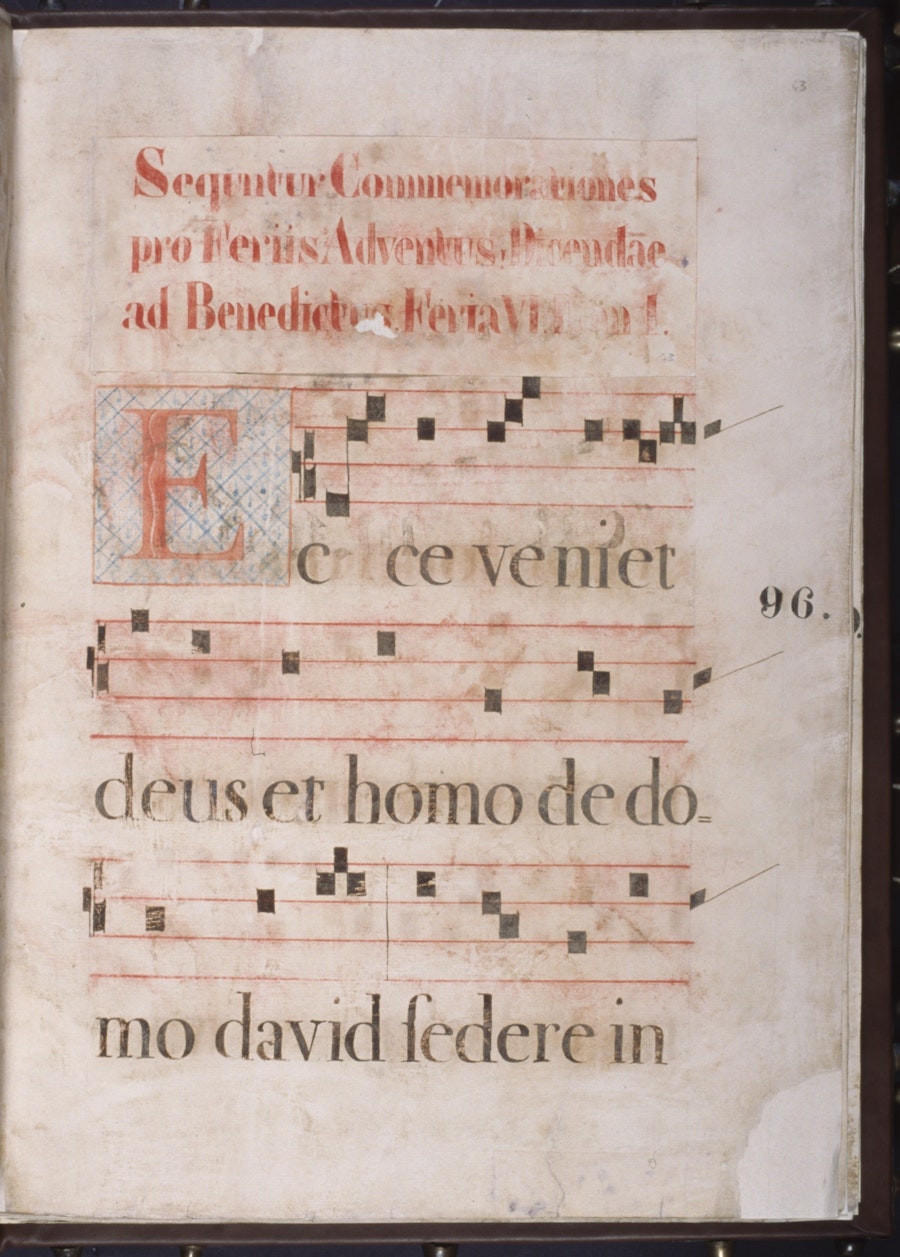 63
Sequntur Commemorationes
pro Feriis Adventus, Dicendæ
ad Benedictus, Feria VI.
E
c ce veniet
96.
deus et homo de do=
mo david ſedere in